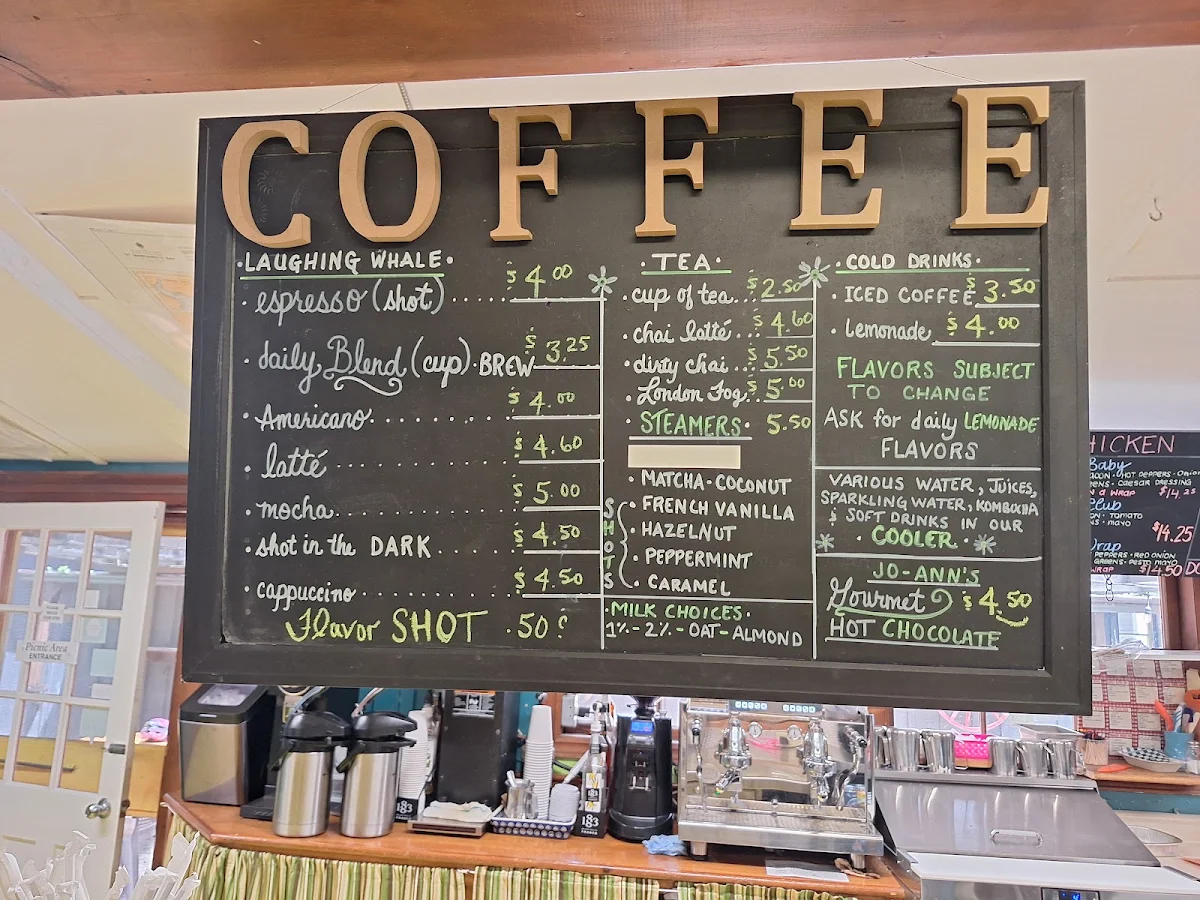 COFFEE
·LAUGHING WHALE·
espresso (shot) ..... $4.00
·daily Blend (cup)·BREW $3.25
·Americano....... $4.00
·latté.......... $4.60
·mocha.......... $5.00
·shot in the DARK...... $4.50
·cappuccino......... $4.50
Flavor SHOT .50¢
·TEA·
·cup of tea.. $2.50
·chai latté... $4.60
·dirty chai... $5.50
·London Fog.. $5.00
·STEAMERS· 5.50
·MATCHA·COCONUT
SHOTS
·FRENCH VANILLA
·HAZELNUT
·PEPPERMINT
·CARAMEL
·MILK CHOICES·
1%-2%-OAT-ALMOND
·COLD DRINKS·
·ICED COFFEE. $3.50
·Lemonade $4.00
FLAVORS SUBJECT
TO CHANGE
ASK for daily LEMONADE
FLAVORS
VARIOUS WATER, JUICES,
SPARKLING WATER, KOMBUCHA
& SOFT DRINKS IN OUR
·COOLER·
JO-ANN'S
Gourmet $4.50
HOT CHOCOLATE
HICKEN
Baby
HOT PEPPERS · Onion
ENS · CAESAR DRESSING
WRAP $14.25
Club
ON · TOMATO
S · MAYO
$14.25
Wrap
PEPPERS · RED ONION
GREENS · PESTO MAYO
WRAP $14.50
Picnic Area
ENTRANCE
183
183